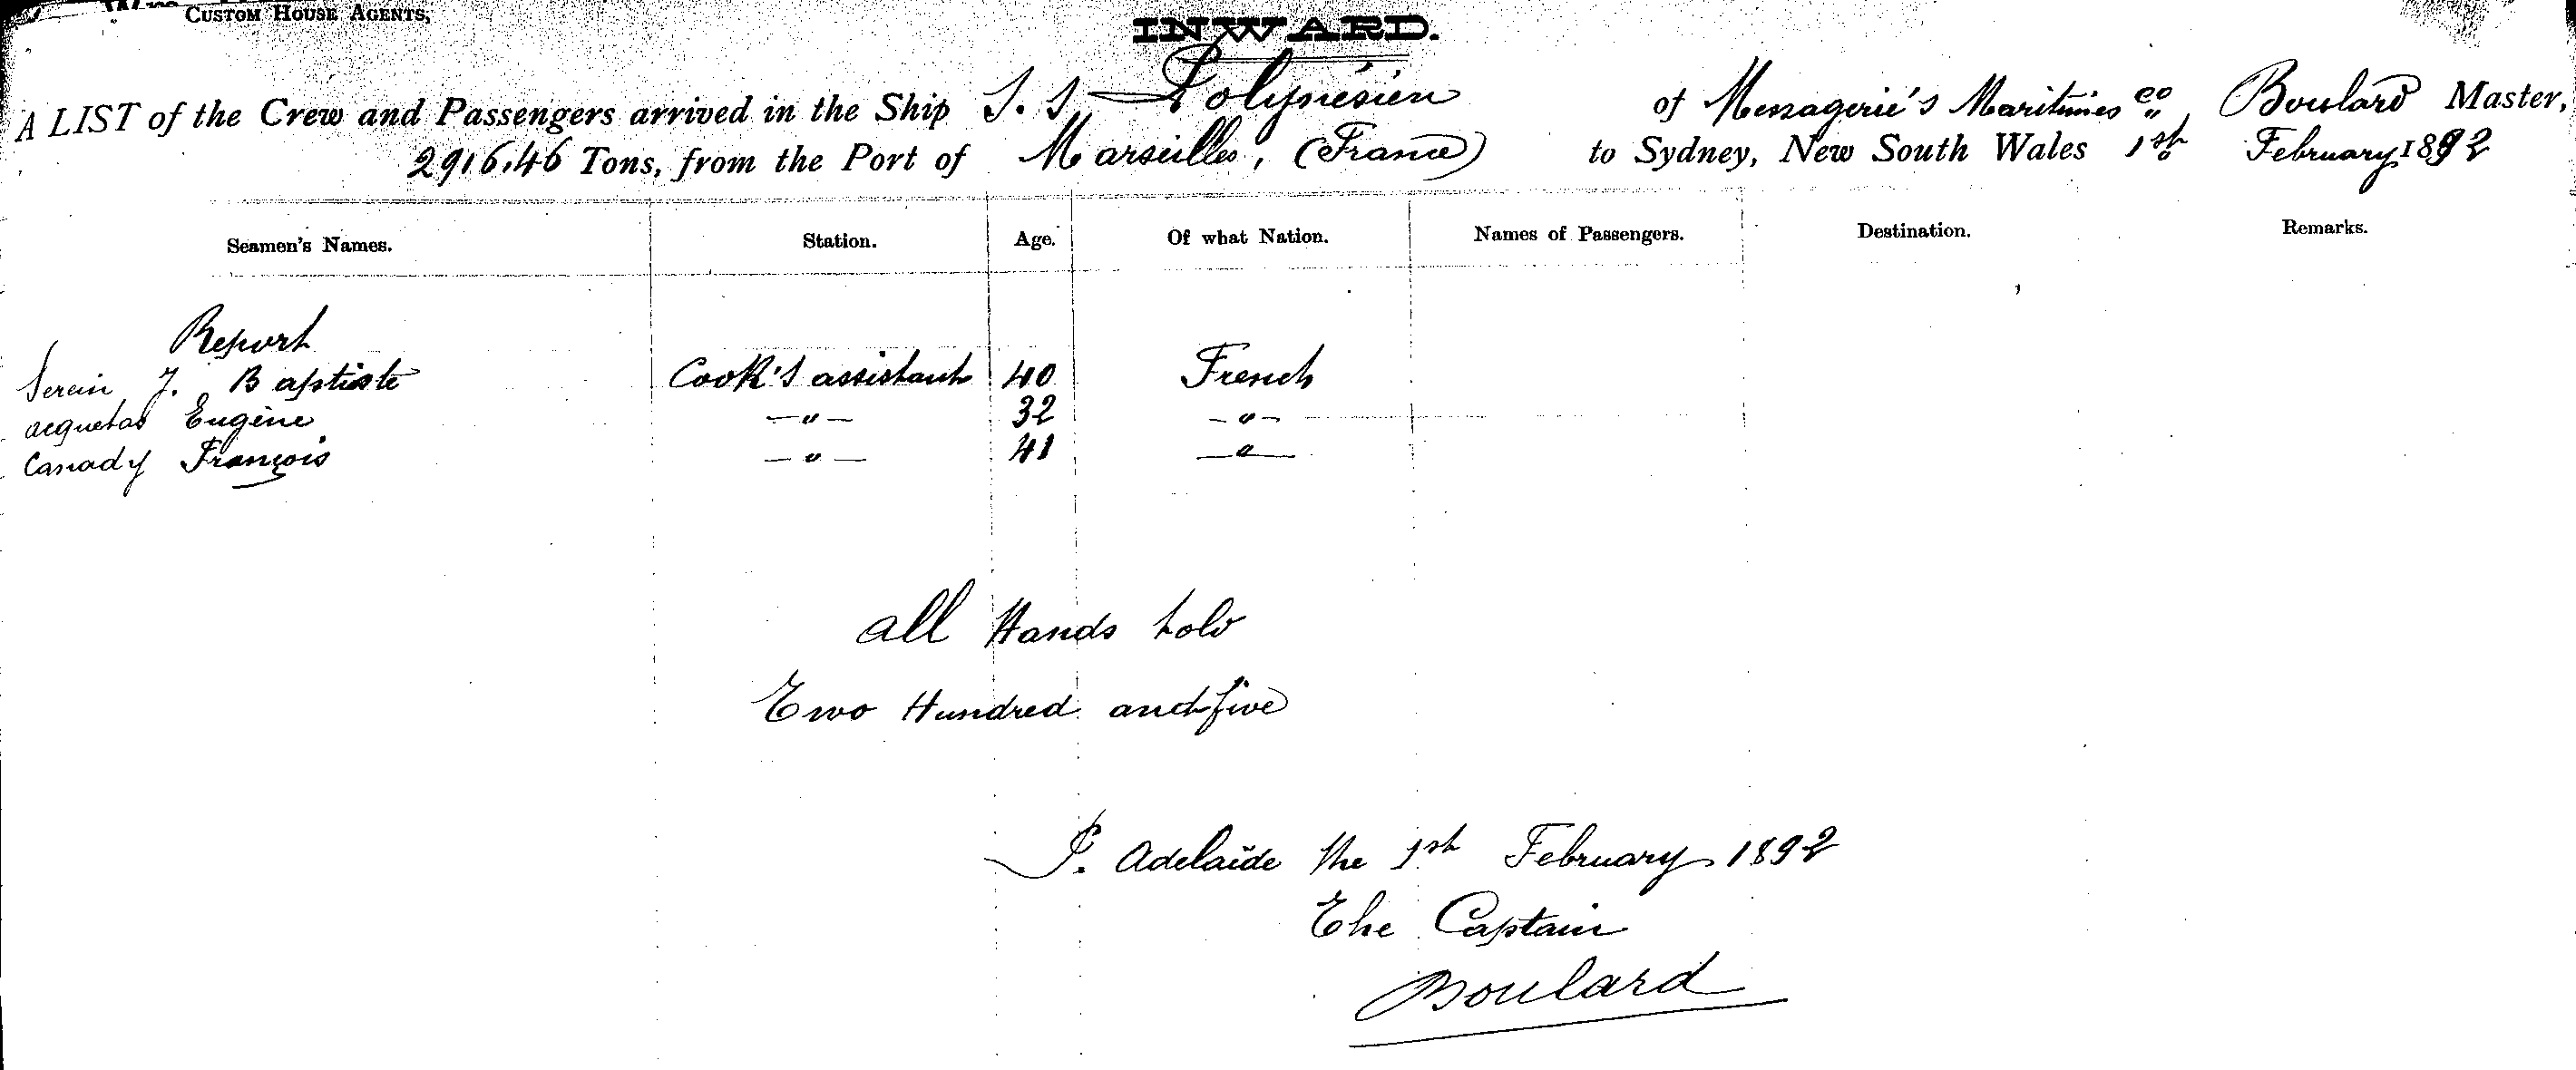 CUSTOM HOUSE AGENTS,
INWARD.
A LIST of the Crew and Passengers arrived in the Ship S. S. Polynésien of Messagerie's Maritimes Co, Boulard Master,
2916,46 Tons, from the Port of Marseilles, (France) to Sydney, New South Wales 1st February 1892
Seamen's Names. Station. Age. Of what Nation. Names of Passengers. Destination. Remarks.
Report
Serein J. Baptiste Cook's assistant 40 French
acquetas Eugène —"— 32 —"—
Canady François —"— 41 —"—
all Hands told
Two Hundred and five
P. Adelaïde the 1st February 1892
The Captain
Boulard